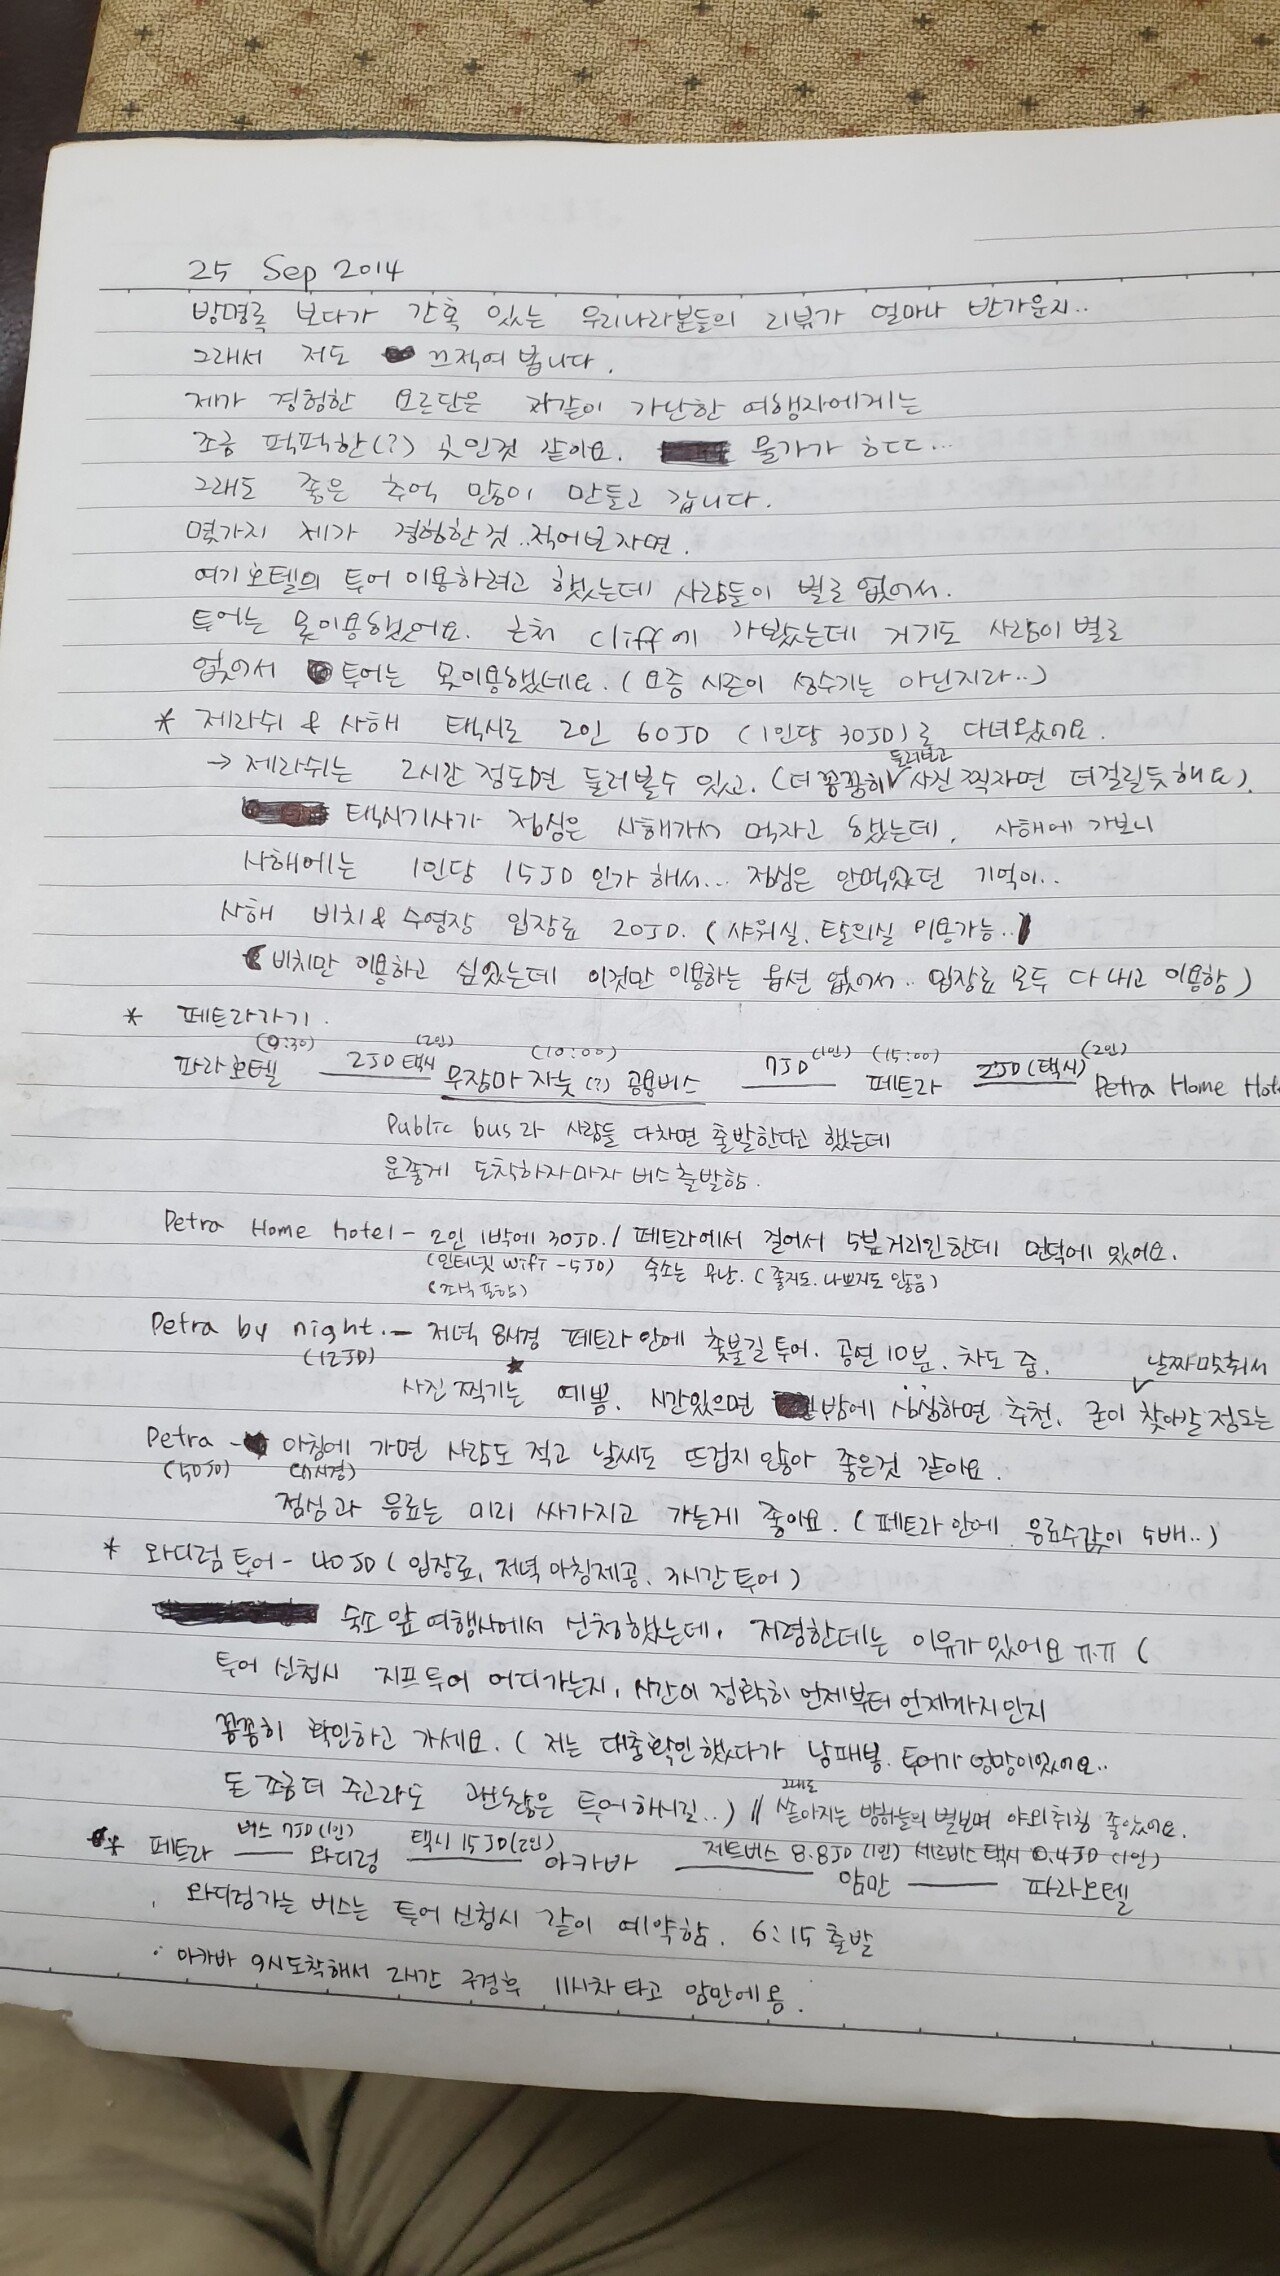 25 Sep 2014
방명록 보다가 간혹 있는 우리나라분들의 리뷰가 얼마나 반가운지..
그래서 저도 끄적여 봅니다.
제가 경험한 요르단은 저같이 가난한 여행자에게는
조금 퍽퍽한(?) 곳인것 같아요. 물가가 ㅎㄷㄷ...
그래도 좋은 추억 많이 만들고 갑니다.
몇가지 제가 경험한것..적어보자면.
여기호텔의 투어 이용하려고 했었는데 사람들이 별로 없어서.
투어는 못이용했었어요. 근처 cliff에 가봤는데 거기도 사람이 별로
없어서 투어는 못이용했네요. (요즘 시즌이 성수기는 아닌지라..)
* 제라쉬 & 사해 택시로 2인 60JD (1인당 30JD)로 다녀왔어요.
→ 제라쉬는 2시간 정도면 둘러볼수 있고. (더 꼼꼼히 둘러보고 사진 찍자면 더걸릴듯해요).
택시기사가 점심은 사해가서 먹자고 했는데, 사해에 가보니
사해에는 1인당 15JD 인가 해서... 점심은 안먹었던 기억이..
사해 비치 & 수영장 입장료 20JD. (샤워실, 탈의실 이용가능..
비치만 이용하고 싶었는데 이것만 이용하는 옵션 없어서.. 입장료 모두 다 내고 이용함)
* 페트라가기.
(9:30) (2인) (10:00) (1인) (15:00) (2인)
파라호텔 2JD 택시 무잠마 자눕(?) 공용버스 7JD 페트라 2JD(택시) Petra Home
Public bus라 사람들 다차면 출발한다고 했는데
운좋게 도착하자마자 버스출발함.
Petra Home hotel - 2인 1박에 30JD. / 페트라에서 걸어서 5분거리인한데 언덕에 있어요.
(인터넷 wifi - 5JD) 숙소는 무난. (좋지도. 나쁘지도 않음)
(조식 포함)
Petra by night. - 저녁 8시경 페트라 안에 촛불길 투어. 공연 10분. 차도 줌.
(12JD)
사진 찍기는 예쁨. 시간있으면 밤에 심심하면 추천. 굳이 날짜맞춰서 찾아갈 정도는
Petra - 아침에 가면 사람도 적고 날씨도 뜨겁지 않아 좋은것 같아요.
(50JD)
점심과 음료는 미리 싸가지고 가는게 좋아요. (페트라 안에 음료수값이 5배..)
* 와디럼 투어 - 40JD (입장료, 저녁 아침제공, 3시간 투어)
숙소 앞 여행사에서 신청했는데, 저렴한데는 이유가 있어요 ㅠ.ㅠ (
투어 신청시 지프투어 어디가는지, 시간이 정확히 언제부터 언제까지 인지
꼼꼼히 확인하고 가세요. (저는 대충확인했다가 낭패봄. 투어가 엉망이었어요..
돈 조금 더 주고라도 괜찮은 투어하시길..) // 그래도 쏟아지는 밤하늘의 별보며 야외취침 좋았어요.
* 페트라 버스 7JD (1인) 와디럼 택시 15JD (2인) 아카바 제트버스 8.8JD (1인) 암만 세르비스 택시 0.4JD (1인) 파라호텔
. 와디럼가는 버스는 투어 신청시 같이 예약함. 6:15 출발
· 아카바 9시도착해서 2시간 구경후 11시차 타고 암만에옴.